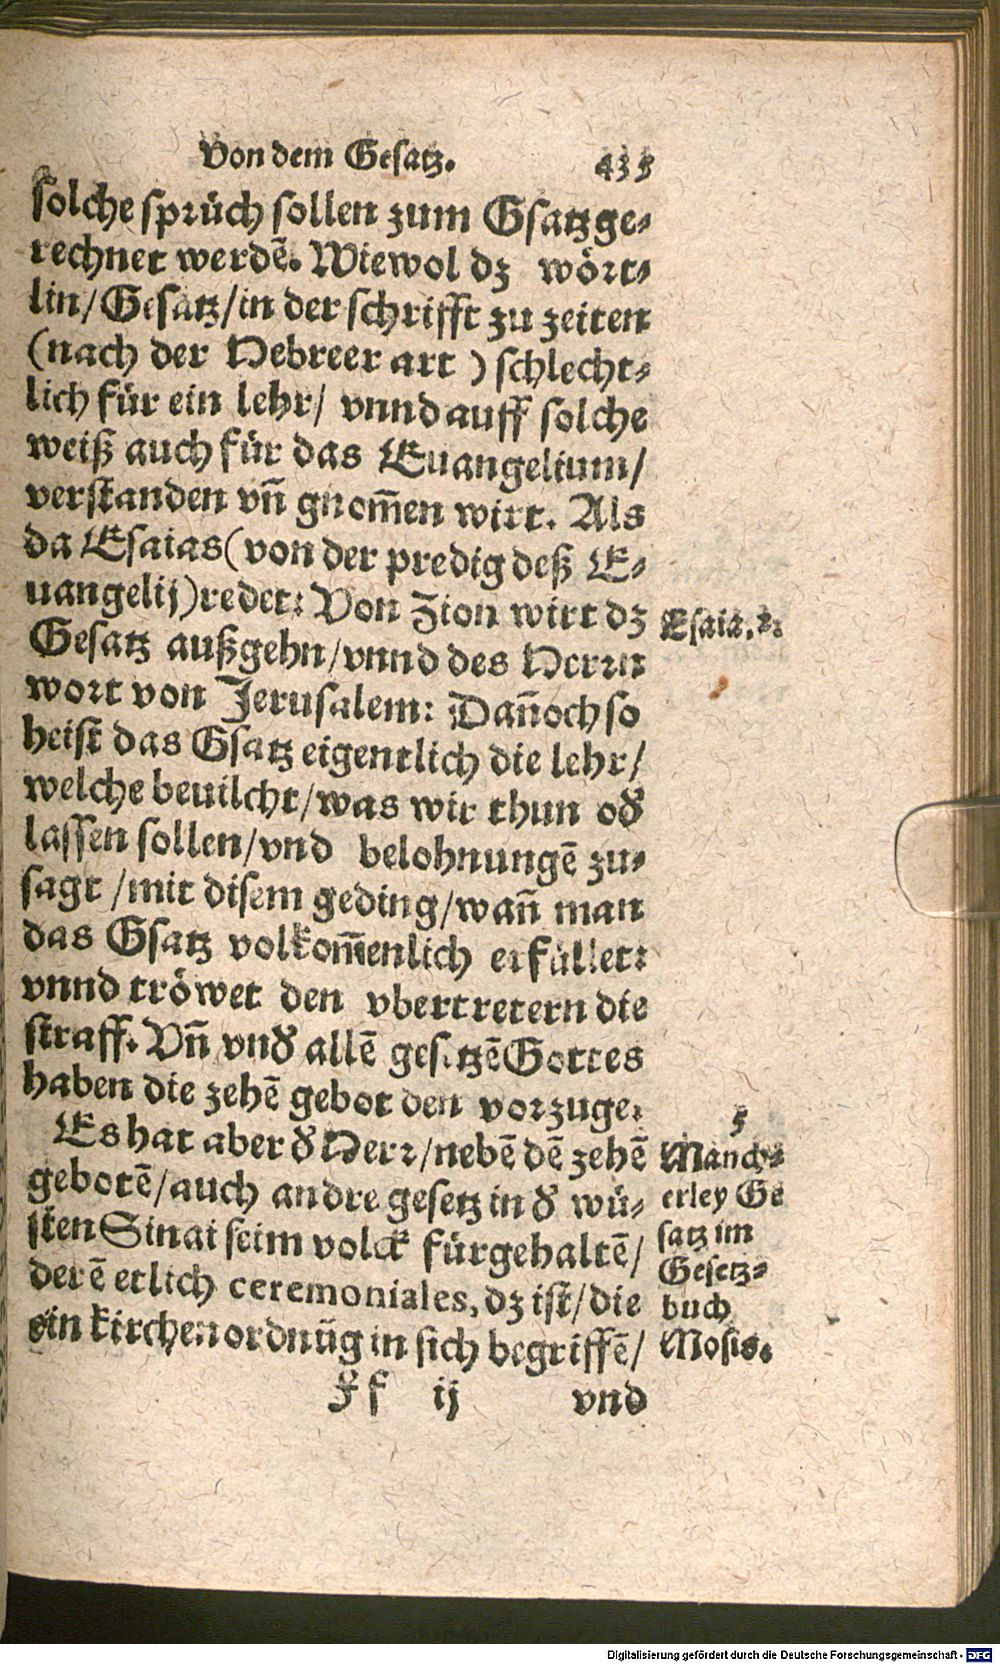 Von dem Gesatz. 435
solche sprüch sollen zum Gsatz ge⸗
rechnet werdẽ. Wiewol dz wört⸗
lin/Gesatz/in der schrifft zu zeiten
(nach der Hebreer art) schlecht⸗
lich für ein lehr/ vnnd auff solche
weiß auch für das Euangelium/
verstanden vñ gnom̃en wirt. Als
da Esaias(von der predig deß E⸗
uangelij)redet: Von Zion wirt dz
Esaia. 2.
Gesatz außgehn/vnnd des Herrn
wort von Jerusalem: Dañoch so
heist das Gsatz eigentlich die lehr/
welche beuilcht/was wir thun oď
lassen sollen/vnd belohnungẽ zu⸗
sagt /mit disem geding/wañ man
das Gsatz volkom̃enlich erfüllet:
vnnd tröwet den vbertretern die
straff. Vñ vnď allẽ gesetzẽ Gottes
haben die zehẽ gebot den vorzuge.
Es hat aber ď Herr/nebẽ dẽ zehẽ
gebotẽ/auch andre gesetz in ď wü⸗
sten Sinai seim volck fürgehaltẽ/
derẽ etlich ceremoniales, dz ist/die
ein kirchenordnũg in sich begriffẽ/
5
Manch⸗
erley Ge
satz im
Gesetz⸗
buch
Mosis.
Ff ij vnd
Digitalisierung gefördert durch die Deutsche Forschungsgemeinschaft - DFG